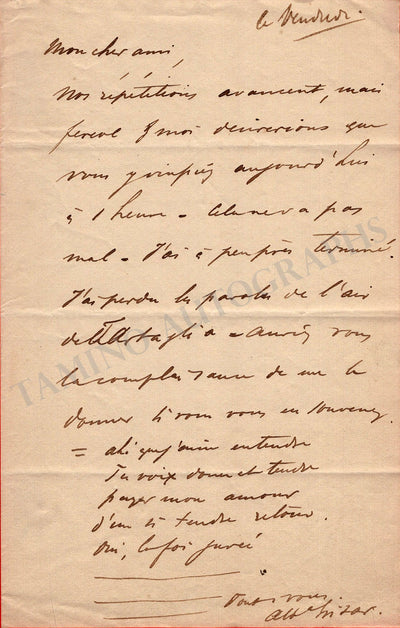 ce Vendredi.
Mon cher ami,
Nos répétitions avancent, mais
& moi désirerions que
vous y vinssiez aujourd'hui
à 1 heure = Cela ne va pas
mal = J'ai à peu près terminé.
J'ai perdu les paroles de l'air
de Tartaglia = auriez vous
la complaisance de me le
donner si vous vous en souvenez
= ah! que j'aime entendre
Ta voix douce et tendre
payer mon amour
d'un si tendre retour.
Oui, la foi jurée
Tout à vous.
Alb. Grisar.
TAMINO AUTOGRAPHS